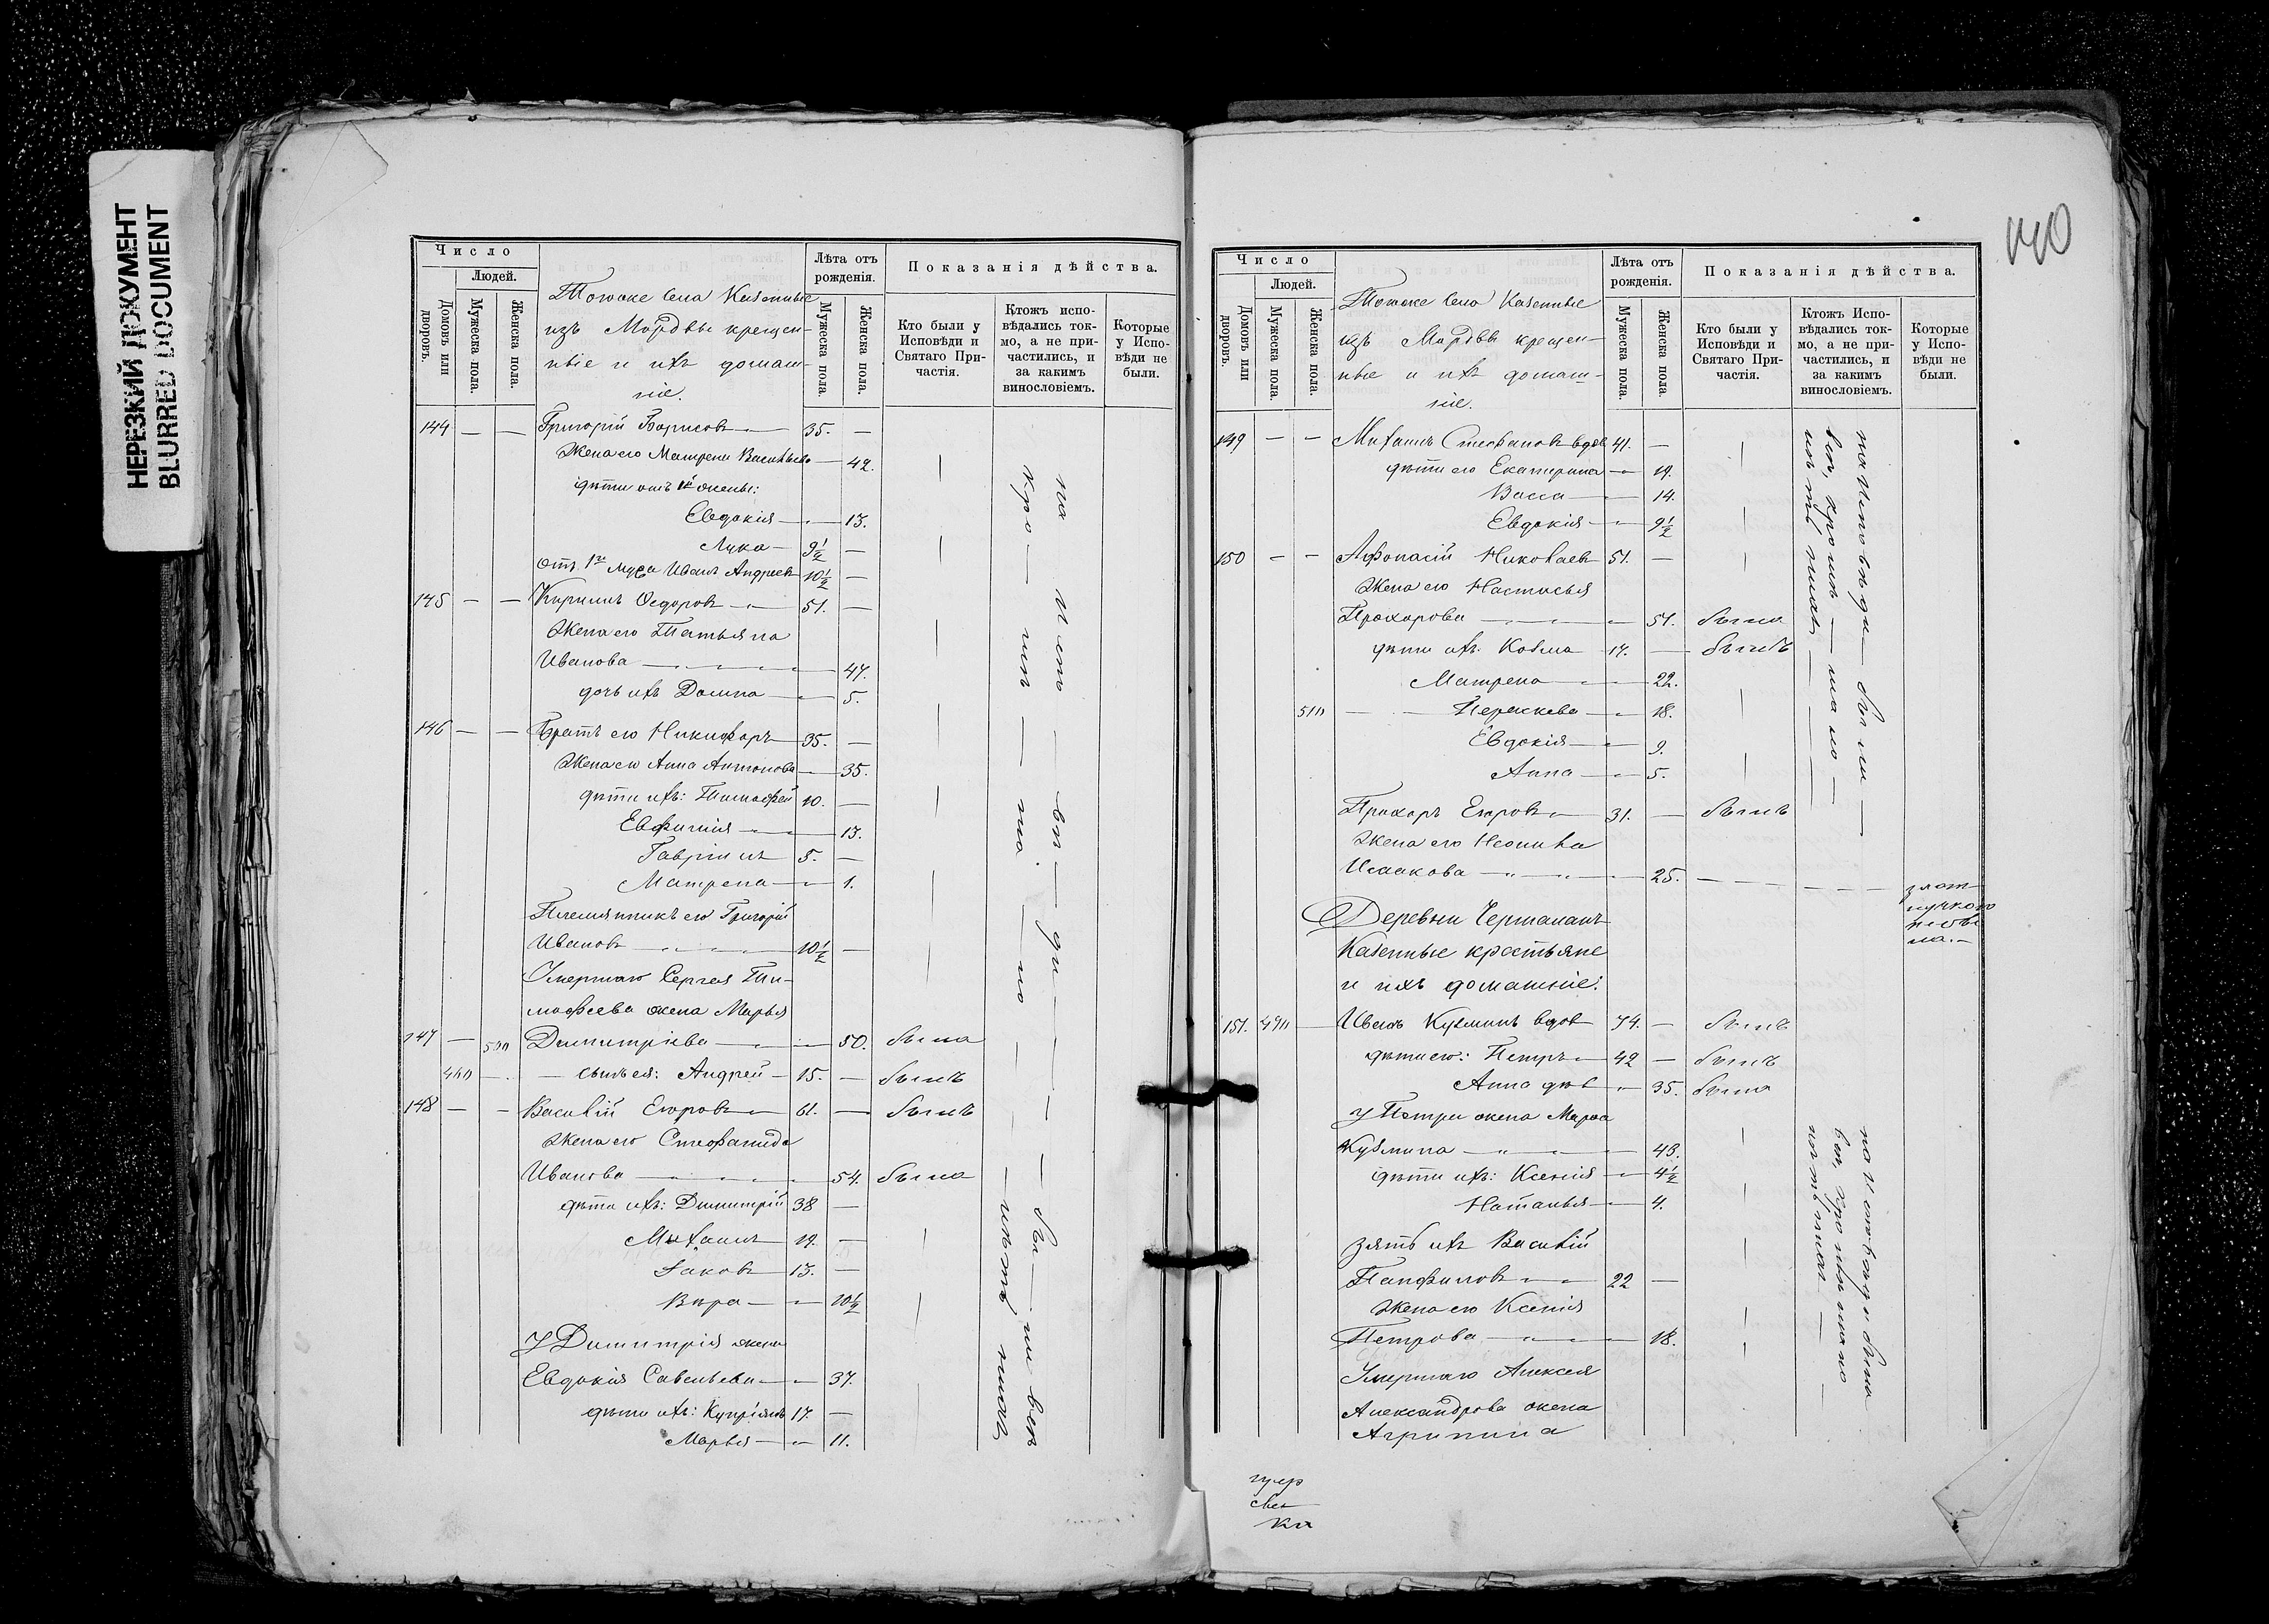 НЕРЕЗКИЙ ДОКУМЕНТ
BLURRED DOCUMENT
Число
Людей.
Домовъ или дворовъ.
Мужеска пола.
Женска пола.
Тогоже села Казенные
изъ Мордвы крещен-
ные и ихъ домаш-
ніе.
Лѣта отъ рожденія.
Мужеска пола.
Женска пола.
Показанія дѣйства.
Кто были у Исповѣди и Святаго Причастія.
Ктожъ исповѣдались токмо, а не причастились, и за какимъ винословіемъ.
Которые у Исповѣди не были.
144 — — Григорій Борисовъ — 35. —
Жена его Матрена Васильева — 42.
дѣти отъ 1й жены:
Евдокія — 13.
Лука — 9½ —
Отъ 1го мужа Иванъ Андреевъ 10½ —
145 — — Кириллъ Ѳедоровъ — 51. —
Жена его Татьяна
Иванова — 47.
дочь ихъ Домна — 5.
146 — — Братъ его Никифоръ — 35. —
Жена его Анна Антонова — 35.
дѣти ихъ: Тимофей 10. —
Евфимія — 13.
Гавріилъ 5. —
Матрена — 1.
Племянникъ его Григорій
Ивановъ — 10½ —
Умершаго Сергея Ти-
мофеева жена Марья
147 — Димитріева — 50. была
— сынъ ея: Андрей — 15. — былъ
148 — — Василій Егоровъ — 61. — былъ
Жена его Стефанида
Иванова — 54. была
дѣти ихъ: Димитрій 38 —
Михаилъ — 19. —
Іаковъ — 13. —
Вѣра — 10½
У Димитрія жена
Евдокія Савельева — 37.
дѣти ихъ: Купріянъ 17. —
Марья — 11.
140
Число
Людей.
Домовъ или дворовъ.
Мужеска пола.
Женска пола.
Тогоже села Казенные
изъ Мордвы крещен-
ные и ихъ домаш-
ніе.
Лѣта отъ рожденія.
Мужеска пола.
Женска пола
Показанія дѣйства.
Кто были у Исповѣди и Святаго Причастія.
Ктожъ Исповѣдались токмо, а не причастились, и за какимъ винословіемъ.
Которые у Исповѣди не были.
149 — — Михаилъ Стефановъ вдов 41. —
дѣти его Екатерина — 19.
Васса — 14.
Евдокія — 9½
150 — — Афонасій Николаевъ 51. —
Жена его Настасья
Прохорова — 51. была
дѣти ихъ: Козма 17. — былъ
Матрена — 22.
Пераскева — 18.
Евдокія — 9.
Анна — 5.
Прохоръ Егоровъ — 31. — былъ
Жена его Неонила
Исаакова — 25. — — — —
Деревни
Казенные крестьяне
и ихъ домашніе:
151. — Иванъ Кузминъ вдов 74. — былъ
дѣти его: Петръ — 42 — былъ
Анна дѣв — 35. была
У Петра жена Марѳа
Кузмина — 43.
дѣти ихъ: Ксенія — 4½
Наталья — 4.
Зять ихъ Василій
Панфиловъ — 22 —
Жена его Ксенія
Петрова — 18.
Умершаго Алексея
Александрова жена
Агрипина